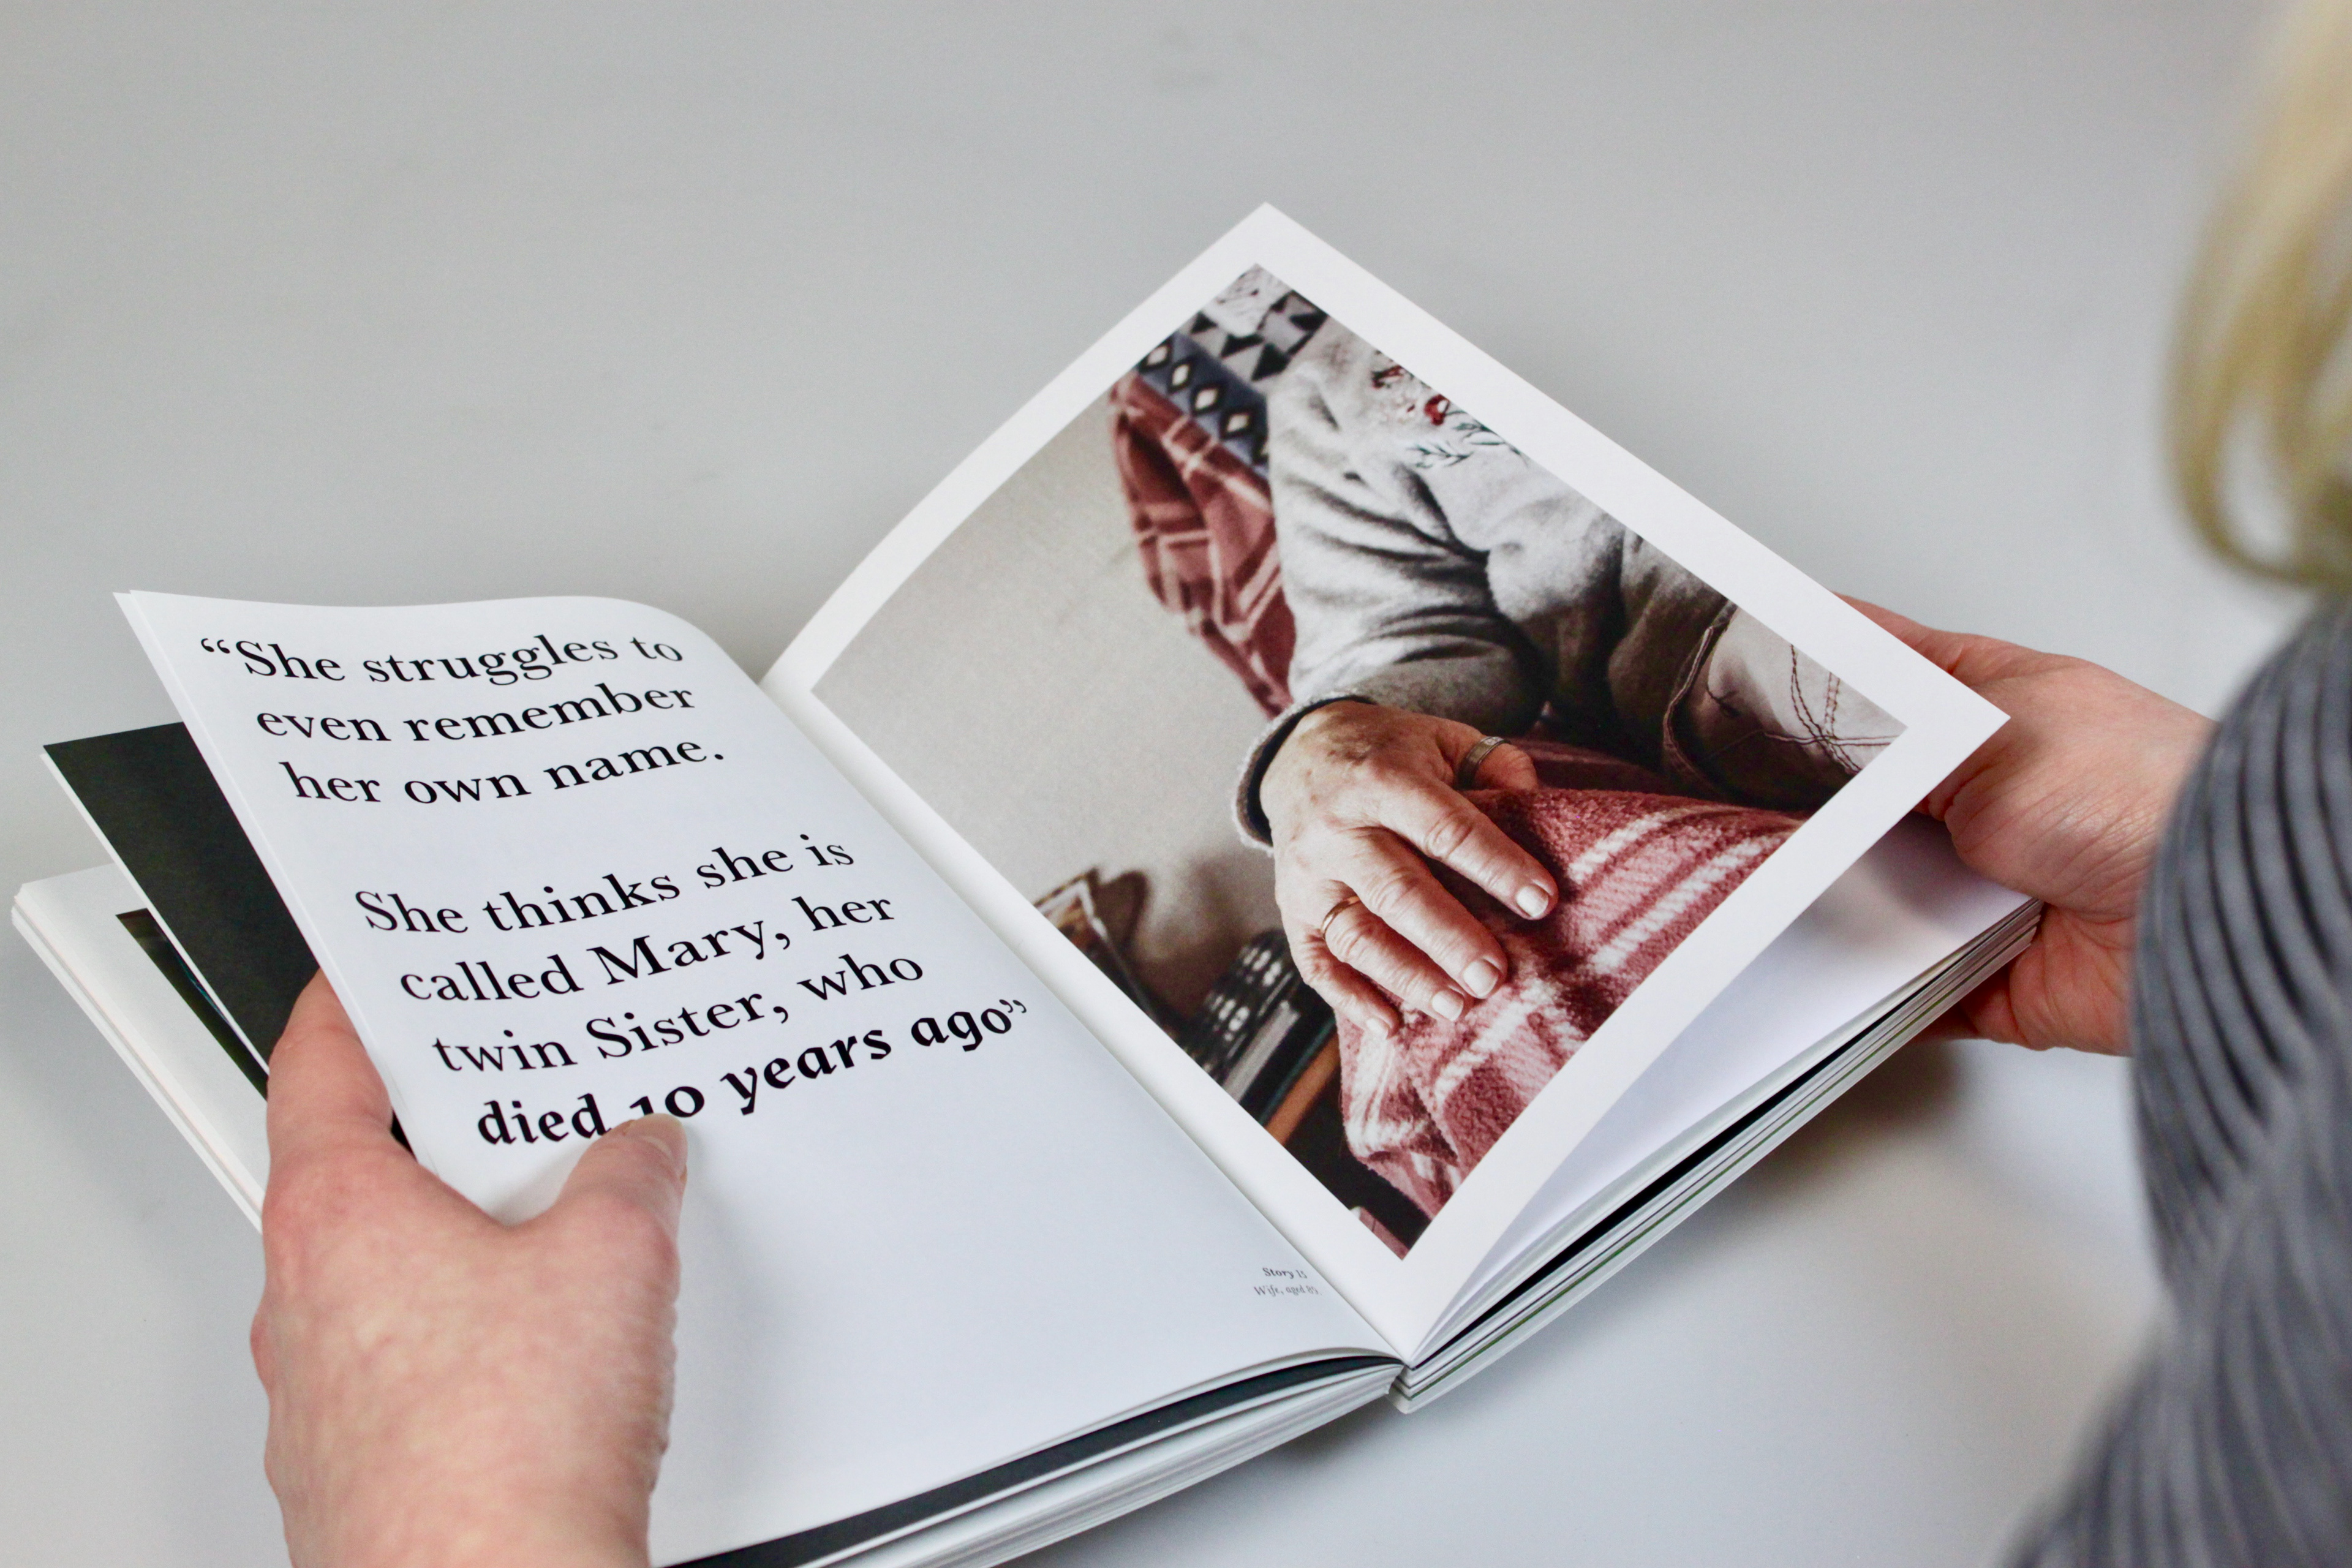 “She struggles to
even remember
her own name.
She thinks she is
called Mary, her
twin Sister, who
died 10 years ago”
Story 15
Wife, aged 85